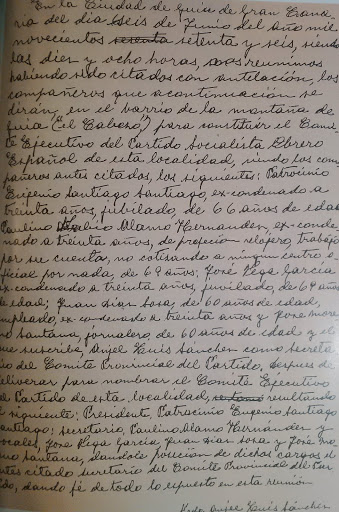 En la Ciudad de Guía de Gran Cana-
ria del dia seis de Junio del año mil
novecientos setenta setenta y seis, siendo
las diez y ocho horas, nos reunimos
habiendo sido citados con antelación, los
compañeros que a continuación se
dirán, en el barrio de la montaña de
Guia ("el Calvario") para constituir el Comi-
te Ejecutivo del Partido Socialista Obrero
Español de esta localidad, siendo los com-
pañeros antes citados, los siguientes: Patrocinio
Eugenio Santiago Santiago, ex-condenado a
treinta años, jubilado, de 66 años de edad
Paulino Alamo Hernandez, ex-conde-
nado a treinta años, de profesion relojero, trabaja
por su cuenta, no cotizando a ningun centro o-
ficial por nada, de 69 años; José Vega Garcia
ex-condenado a treinta años, jubilado, de 64 años
de edad; Juan Diaz Sosa, de 60 años de edad,
empleado, ex-condenado a treinta años y José More-
no Santana, jornalero, de 60 años de edad y el
que suscribe, Angel Luis Sánchez como secreta-
rio del Comite Provincial del Partido. Despues de
deliverar para nombrar el Comite Ejecutivo
de Partido de esta localidad, resultando
el siguiente: Presidente, Patrocinio Eugenio Santiago
Santiago: secretario, Paulino Alamo Hernández y
vocales, José Vega Garcia, Juan Diaz Sosa y José Mo-
reno Santana, dandole posecion de dichos cargos el
antes citado secretario del Comite Provincial del Par-
tido, dando fé de todo lo espuesto en esta reunión
Angel Luis Sánchez